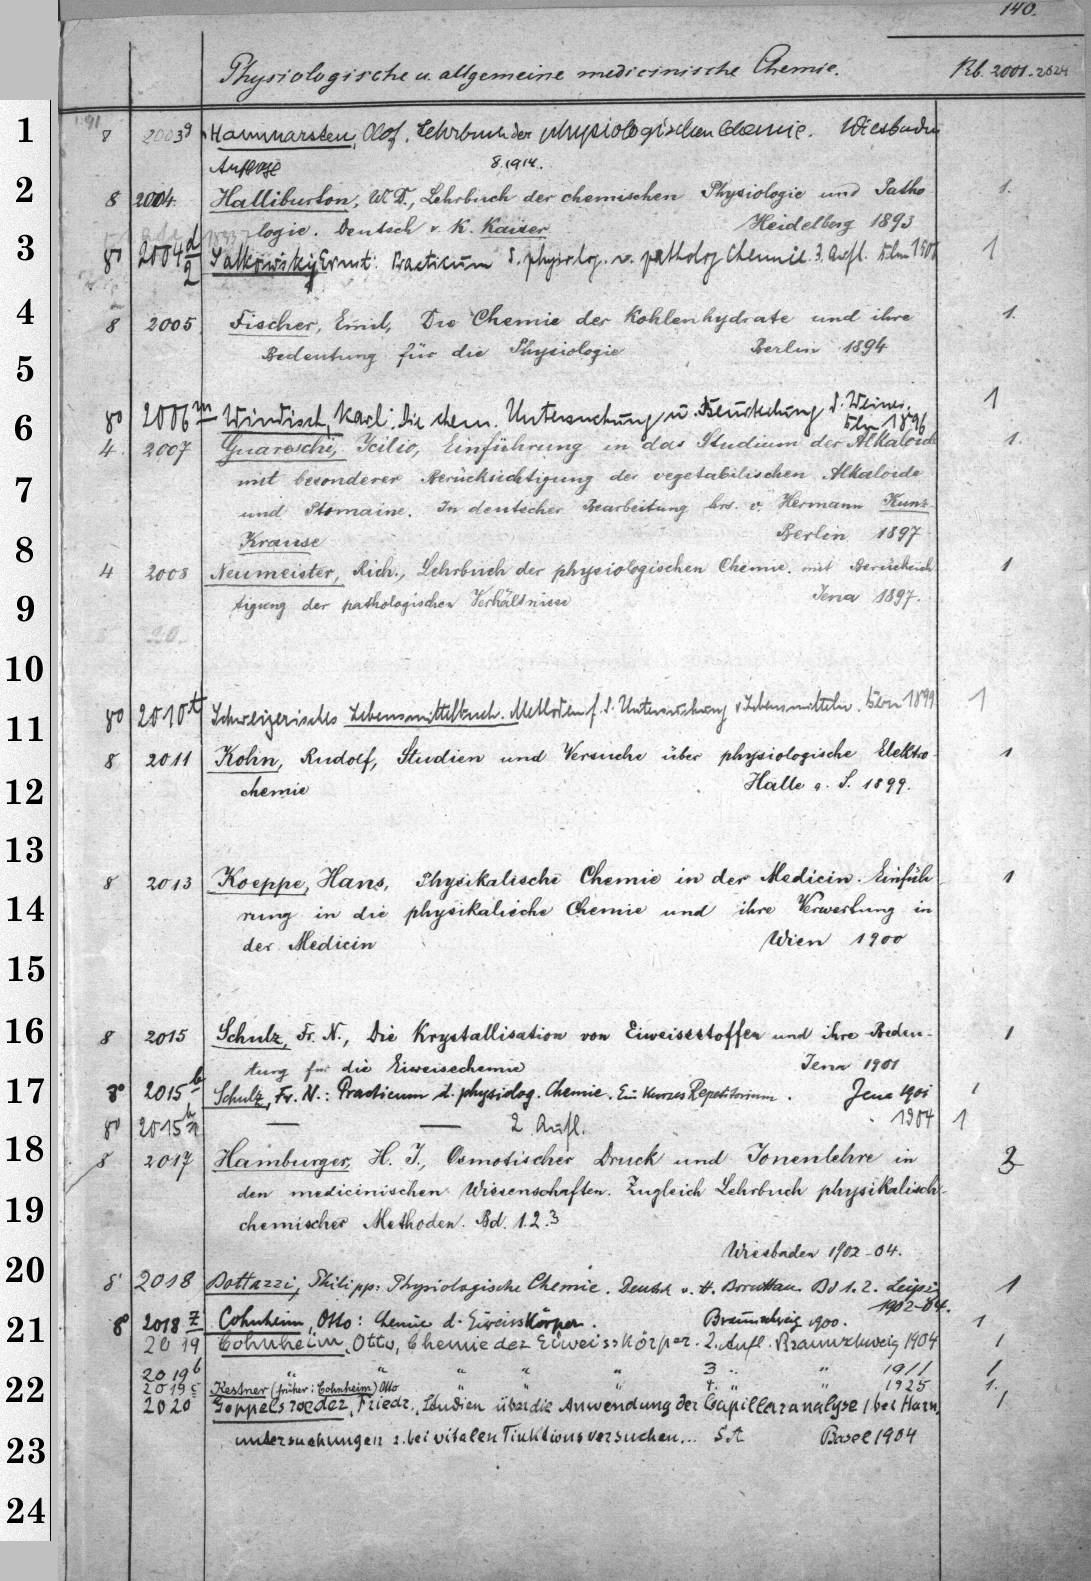 140.
Physiologische u. allgemeine medicinische Chemie. Rb. 2001-2024
1
8 2003g Hammarsten, Olof. Lehrbuch der physiologischen Chemie. Wiesbaden
Auflage 8. 1914.
2
8 2004. Halliburton, W. D., Lehrbuch der chemischen Physiologie und Patho 1.
logie. Deutsch v. K. Kaiser Heidelberg 1893
3
8° 2004 d/2 Salkowsky Ernst: Practicum d. physiolog. u. patholog Chemie. 3. Aufl. Bln 1906 1
4
8 2005 Fischer, Emil, Die Chemie der Kohlenhydrate und ihre 1.
Bedeutung für die Physiologie Berlin 1894
5
8° 2006 m Windisch, Karl: Die chem. Untersuchung u. Beurteilung d. Weines. 1
Bln 1896
6
4 2007 Guareschi, Icilio, Einführung in das Studium der Alkaloide 1.
mit besonderer Berücksichtigung der vegetabilischen Alkaloide
7
und Ptomaine. In deutscher Bearbeitung hrs. v. Hermann Kunz-
Krause Berlin 1897
8
4 2008 Neumeister, Rich., Lehrbuch der physiologischen Chemie. mit Berücksich 1
tigung der pathologischen Verhältnisse Jena 1897.
9
20
10
8° 2010 t Schweizerisches Lebensmittelbuch. Methoden f. d. Untersuchung v Lebensmitteln. Bern 1899 1
11
8 2011 Kohn, Rudolf, Studien und Versuche über physiologische Elektro- 1
chemie Halle a. S. 1899.
12
13
8 2013 Koeppe, Hans, Physikalische Chemie in der Medicin. Einfüh 1
14
rung in die physikalische Chemie und ihre Verwerthung in
der Medicin Wien 1900
15
16
8 2015 Schulz, Fr. N., Die Krystallisation von Eiweissstoffen und ihre Bedeu- 1
tung für die Eiweisschemie Jena 1901
17
8° 2015 b Schulz, Fr. N.: Practicum d. physiolog. Chemie. Ein kurzes Repetitorium. Jena 1901 1
8° 2015 — — 2. Aufl. 1904 1
18
8 2017 Hamburger, H. J., Osmotischer Druck und Ionenlehre in 3
den medicinischen Wissenschaften. Zugleich Lehrbuch physikalisch-
19
chemischer Methoden. Bd. 1.2.3
Wiesbaden 1902-04.
20
8° 2018 Bottazzi, Philipp: Physiologische Chemie. Deutsch v. H. Boruttau. Bd 1. 2. Leipzig 1
1902-04.
8° 2018 z Cohnheim, Otto: Chemie d. Eiweisskörper. Braunschweig 1900. 1
21
2019 Cohnheim, Otto, Chemie der Eiweisskörper. 2. Aufl. Braunschweig 1904 1
2019 b " " " " 3 " " 1911 1
22
2019 c Kestner (früher: Cohnheim) Otto " " " 4. " " 1925 1.
2020 Goppelsroeder, Friedr., Studien über die Anwendung der Capillaranalyse / bei Harn 1
23
untersuchungen 2. bei vitalen Tinktionsversuchen... S.A Basel 1904
24